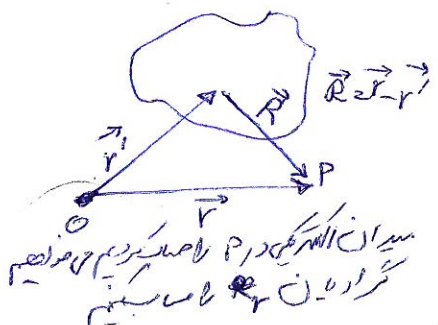 R⃗ = r⃗ - r⃗'
R⃗
r⃗'
P
r⃗
O
میدان الکتریکی در P را حساب کردیم می‌خواهیم
گرادیان را حساب کنیم